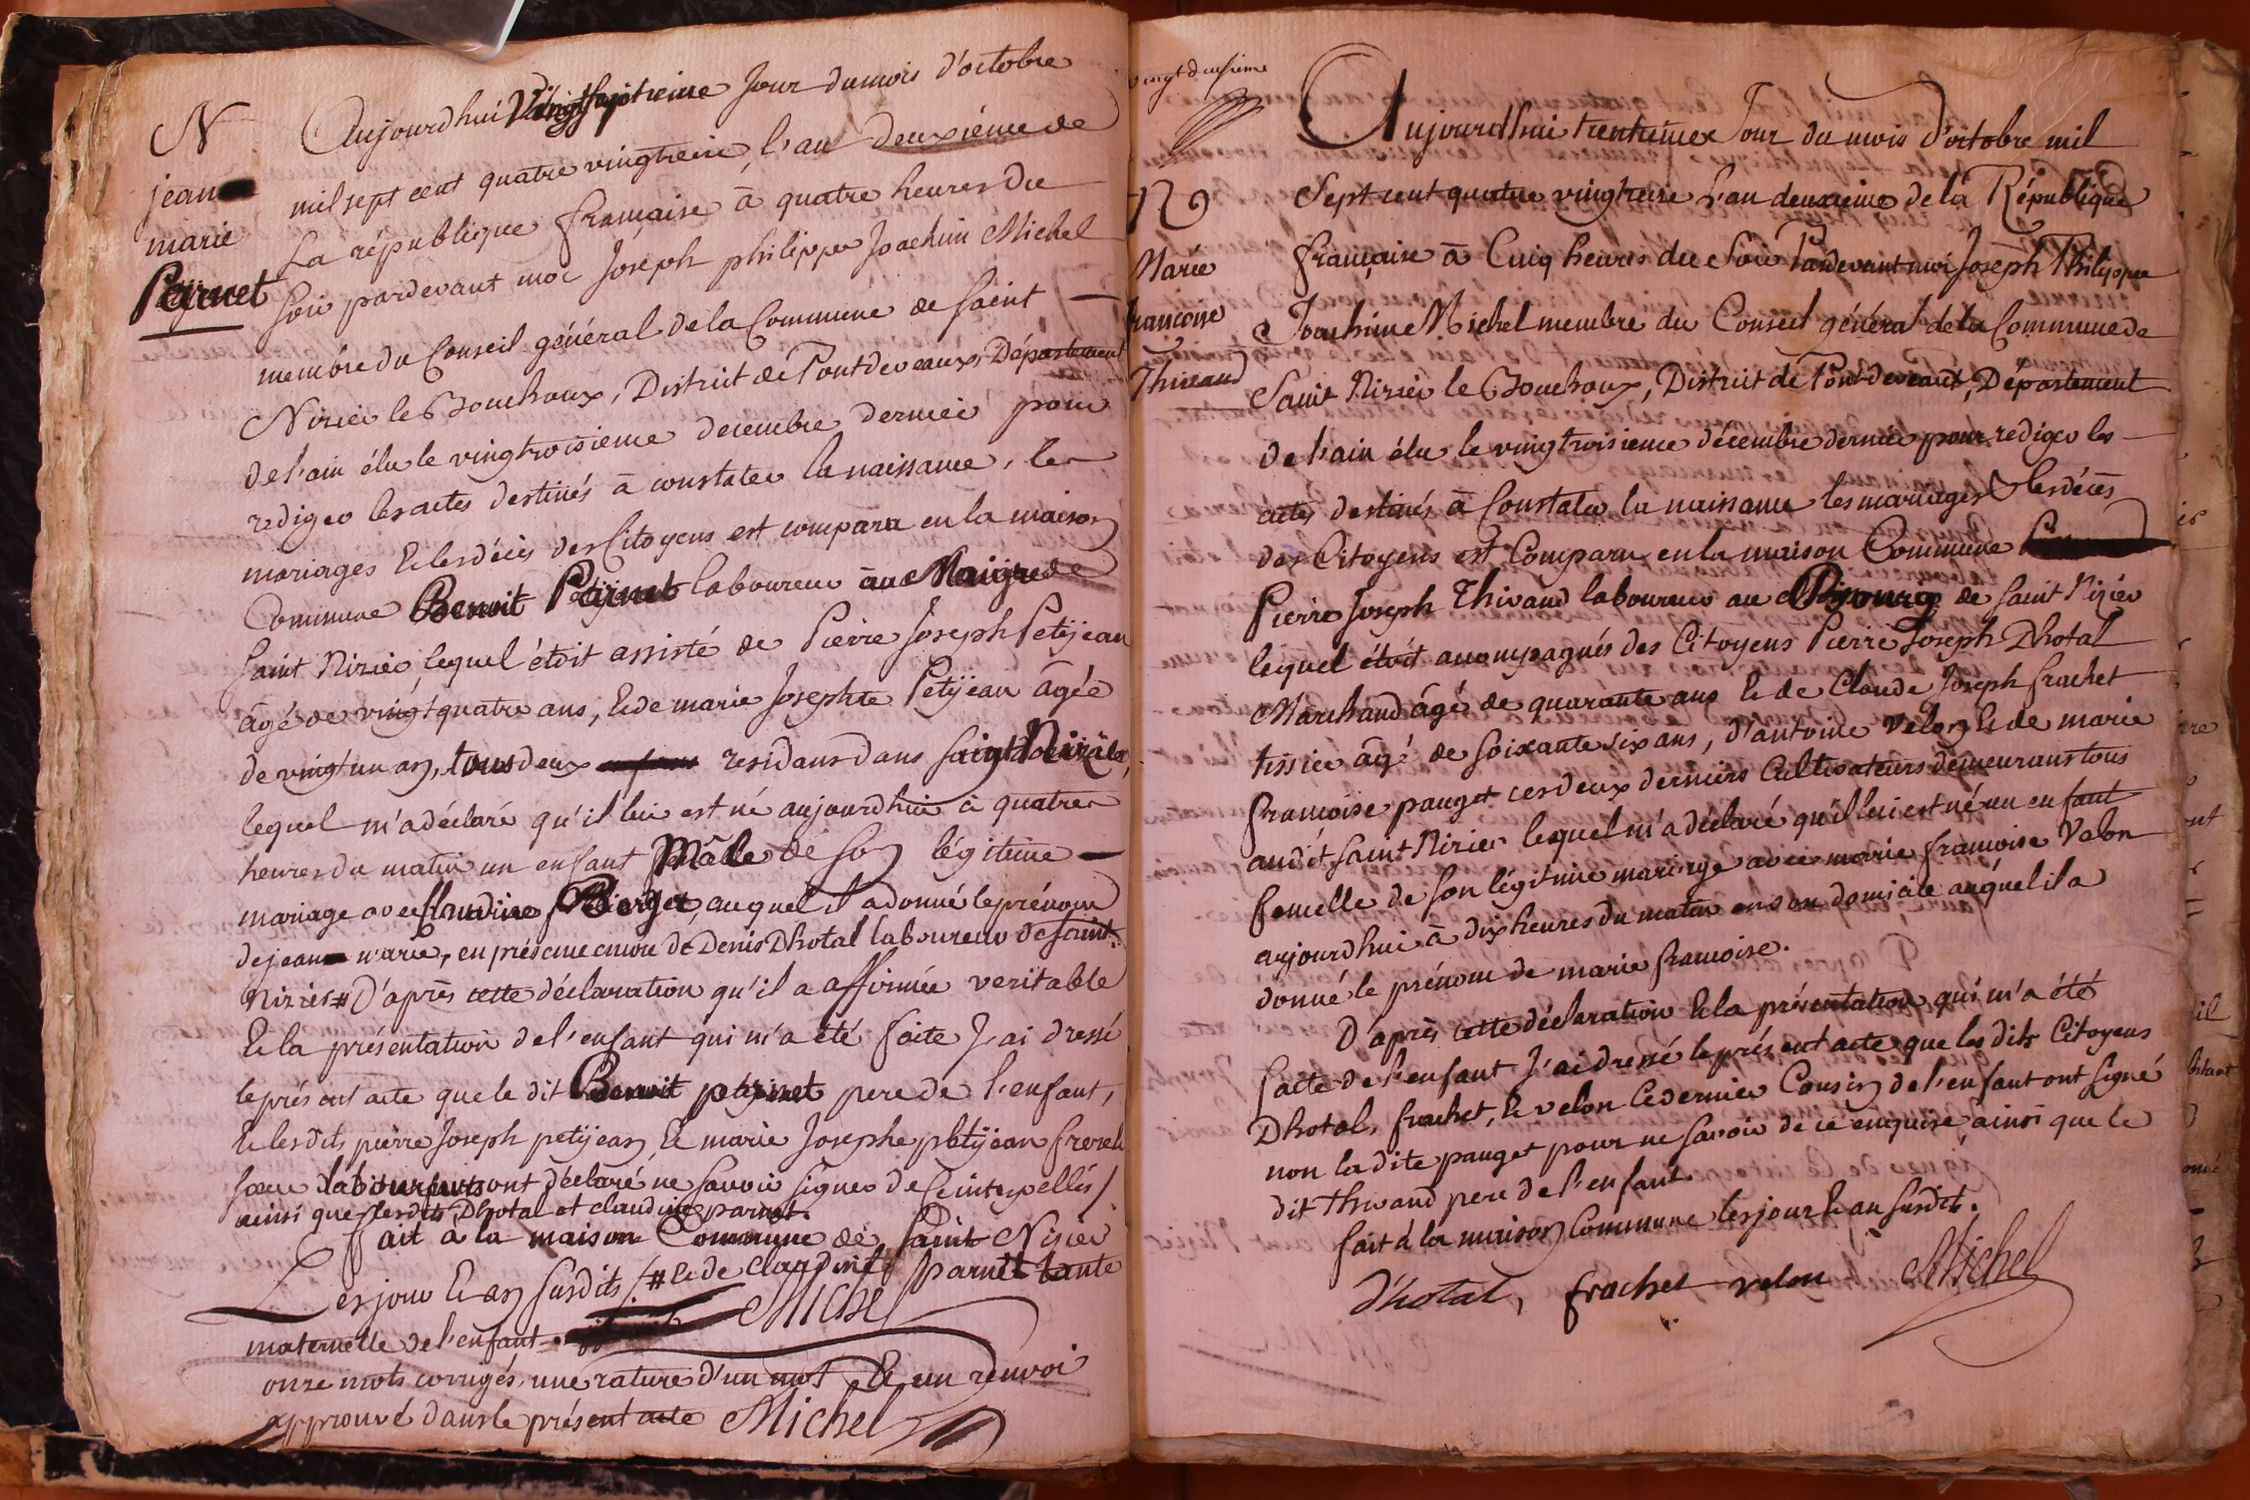 N
jean
marie
Parnet
Aujourdhui Vingtseptieme Jour du mois d'octobre
mil sept cent quatre vingtreize, l'an deuxième de
La république française à quatre heures du
Soir pardevant moi Joseph philippe Joachim Michel
membre du Conseil général de la Commune de Saint
Nizier le Bouchoux, District de Pontdevaux, Département
de l'ain élu le vingtroisieme decembre dernier pour
rediger les actes destinés à constater la naissance, les
mariages & les décès des Citoyens est comparu en la maison
Commune Benoit Parnet laboureur au Maigre de
Saint Nizier, lequel étoit assisté de Pierre Joseph Petijean
âgé de vingt quatre ans, & de marie Josephte Petijean âgée
de vingt un an, tous deux residans dans saint Nizier,
lequel m'a déclaré qu'il lui est né aujourdhui à quatre
heures du matin un enfant Mâle de son légitime
mariage avec Claudine Berger, auquel il a donné le prénom
de jean marie, en présence encore de Denis Dhotal laboureur de saint
Nizier # D'après cette déclaration qu'il a affirmée veritable
& la présentation de l'enfant qui m'a été faite J'ai dressé
le présent acte que le dit Benoit parnet pere de l'enfant,
& lesdits pierre Joseph petijean & marie Josephe petijean frere &
sœur laboureurs ont déclaré ne savoir signer de ce interpellés/
ainsi que lesdits Dhotal et claudine parnet.
Fait à la maison Commune de Saint Nizier
Les jour & an susdits / # & de claudine parnet tante
Michel
maternelle de l'enfant
onze mots corrigés, une rature d'un mot & un renvoi
approuvé dans le présent acte Michel
vingt deuxieme
N
Marie
francoise
Thivaud
Aujourdhui trentieme Jour du mois d'octobre mil
Sept cent quatre vingtreize l'an deuxieme de la République
française à Cinq heures du Soir Pardevant moi Joseph Philippe
Joachim Michel membre du Conseil général de la Commune de
Saint Nizier le Bouchoux, District de Pontdevaux, Département
de l'ain élu le vingtroisieme décembre dernier pour rediger les
actes destinés à Constater la naissance les mariages & les décès
des Citoyens est Comparu en la maison Commune
Pierre Joseph Thivaud laboureur au de Saint Nizier
lequel étoit accompagnés des Citoyens Pierre Joseph Dhotal
Marchand âgé de quarante ans & de Claude Joseph frachet
tissier âgé de soixante six ans, d'antoine Velon & de marie
francoise pauget ces deux derniers Cultivateurs demeurans tous
audit Saint Nizier lequel m'a declaré qu'il lui est né un enfant
femelle de son légitime mariage avec marie francoise Velon
aujourdhui à dix heures du matin en son domicile auquel il a
donné le prénom de marie francoise.
D'après cette déclaration & la présentation qui m'a été
faite de l'enfant J'ai dressé le présent acte que les dits Citoyens
Dhotal, frachet, & velon Ce dernier Cousin de l'enfant ont signé
non la dite pauget pour ne savoir de ce enquise ainsi que le
dit Thivaud pere de l'enfant.
fait à la maison Commune les jour & an susdits.
d'hotal, frachet velon Michel